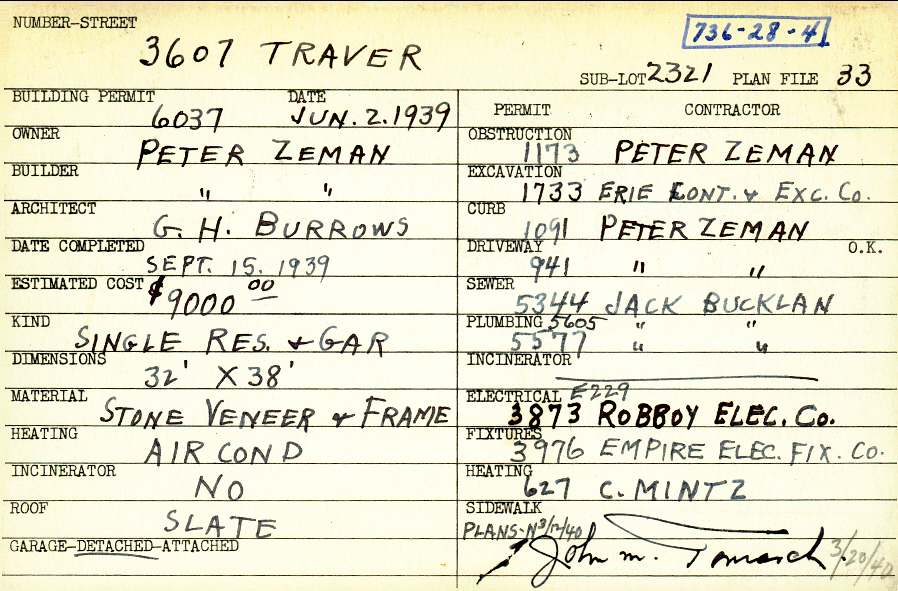 NUMBER-STREET
736-28-4
3607 TRAVER
SUB-LOT 2321 PLAN FILE 33
BUILDING PERMIT DATE
6037 JUN. 2. 1939
OWNER
PETER ZEMAN
BUILDER
" "
ARCHITECT
G. H. BURROWS
DATE COMPLETED
SEPT. 15. 1939
ESTIMATED COST $9000 00
KIND
SINGLE RES. & GAR
DIMENSIONS
32' X 38'
MATERIAL
STONE VENEER & FRAME
HEATING
AIR COND
INCINERATOR
NO
ROOF
SLATE
GARAGE-DETACHED-ATTACHED
PERMIT CONTRACTOR
OBSTRUCTION
1173 PETER ZEMAN
EXCAVATION
1733 ERIE CONT. & EXC. CO.
CURB
1091 PETER ZEMAN
DRIVEWAY O.K.
941 " "
SEWER
5344 JACK BUCKLAN
PLUMBING 5605 " "
5577 " "
INCINERATOR
ELECTRICAL E229
3873 ROBBOY ELEC. CO.
FIXTURES
3976 EMPIRE ELEC. FIX. CO.
HEATING
627 C. MINTZ
SIDEWALK
PLANS-N 3/12/40
John M. Tomasch 3/20/40